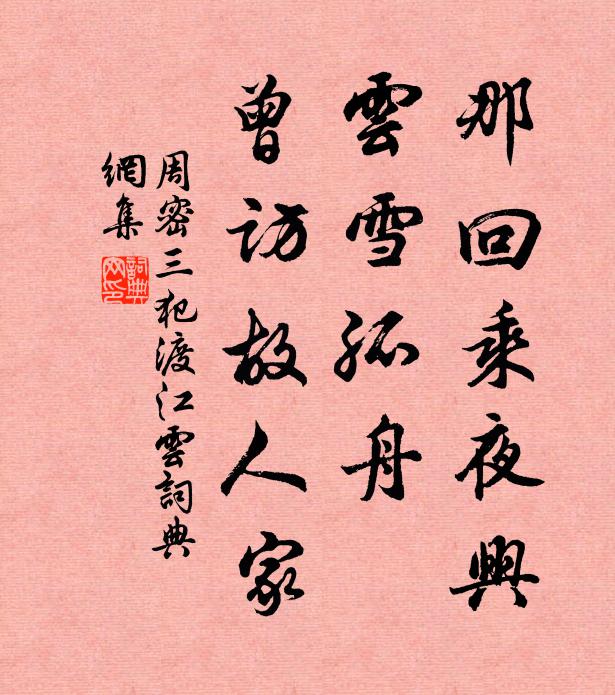 那回乘夜興
雲雪孤舟
曾訪故人家
周密三犯渡江雲詞典
網集
詞典
网印